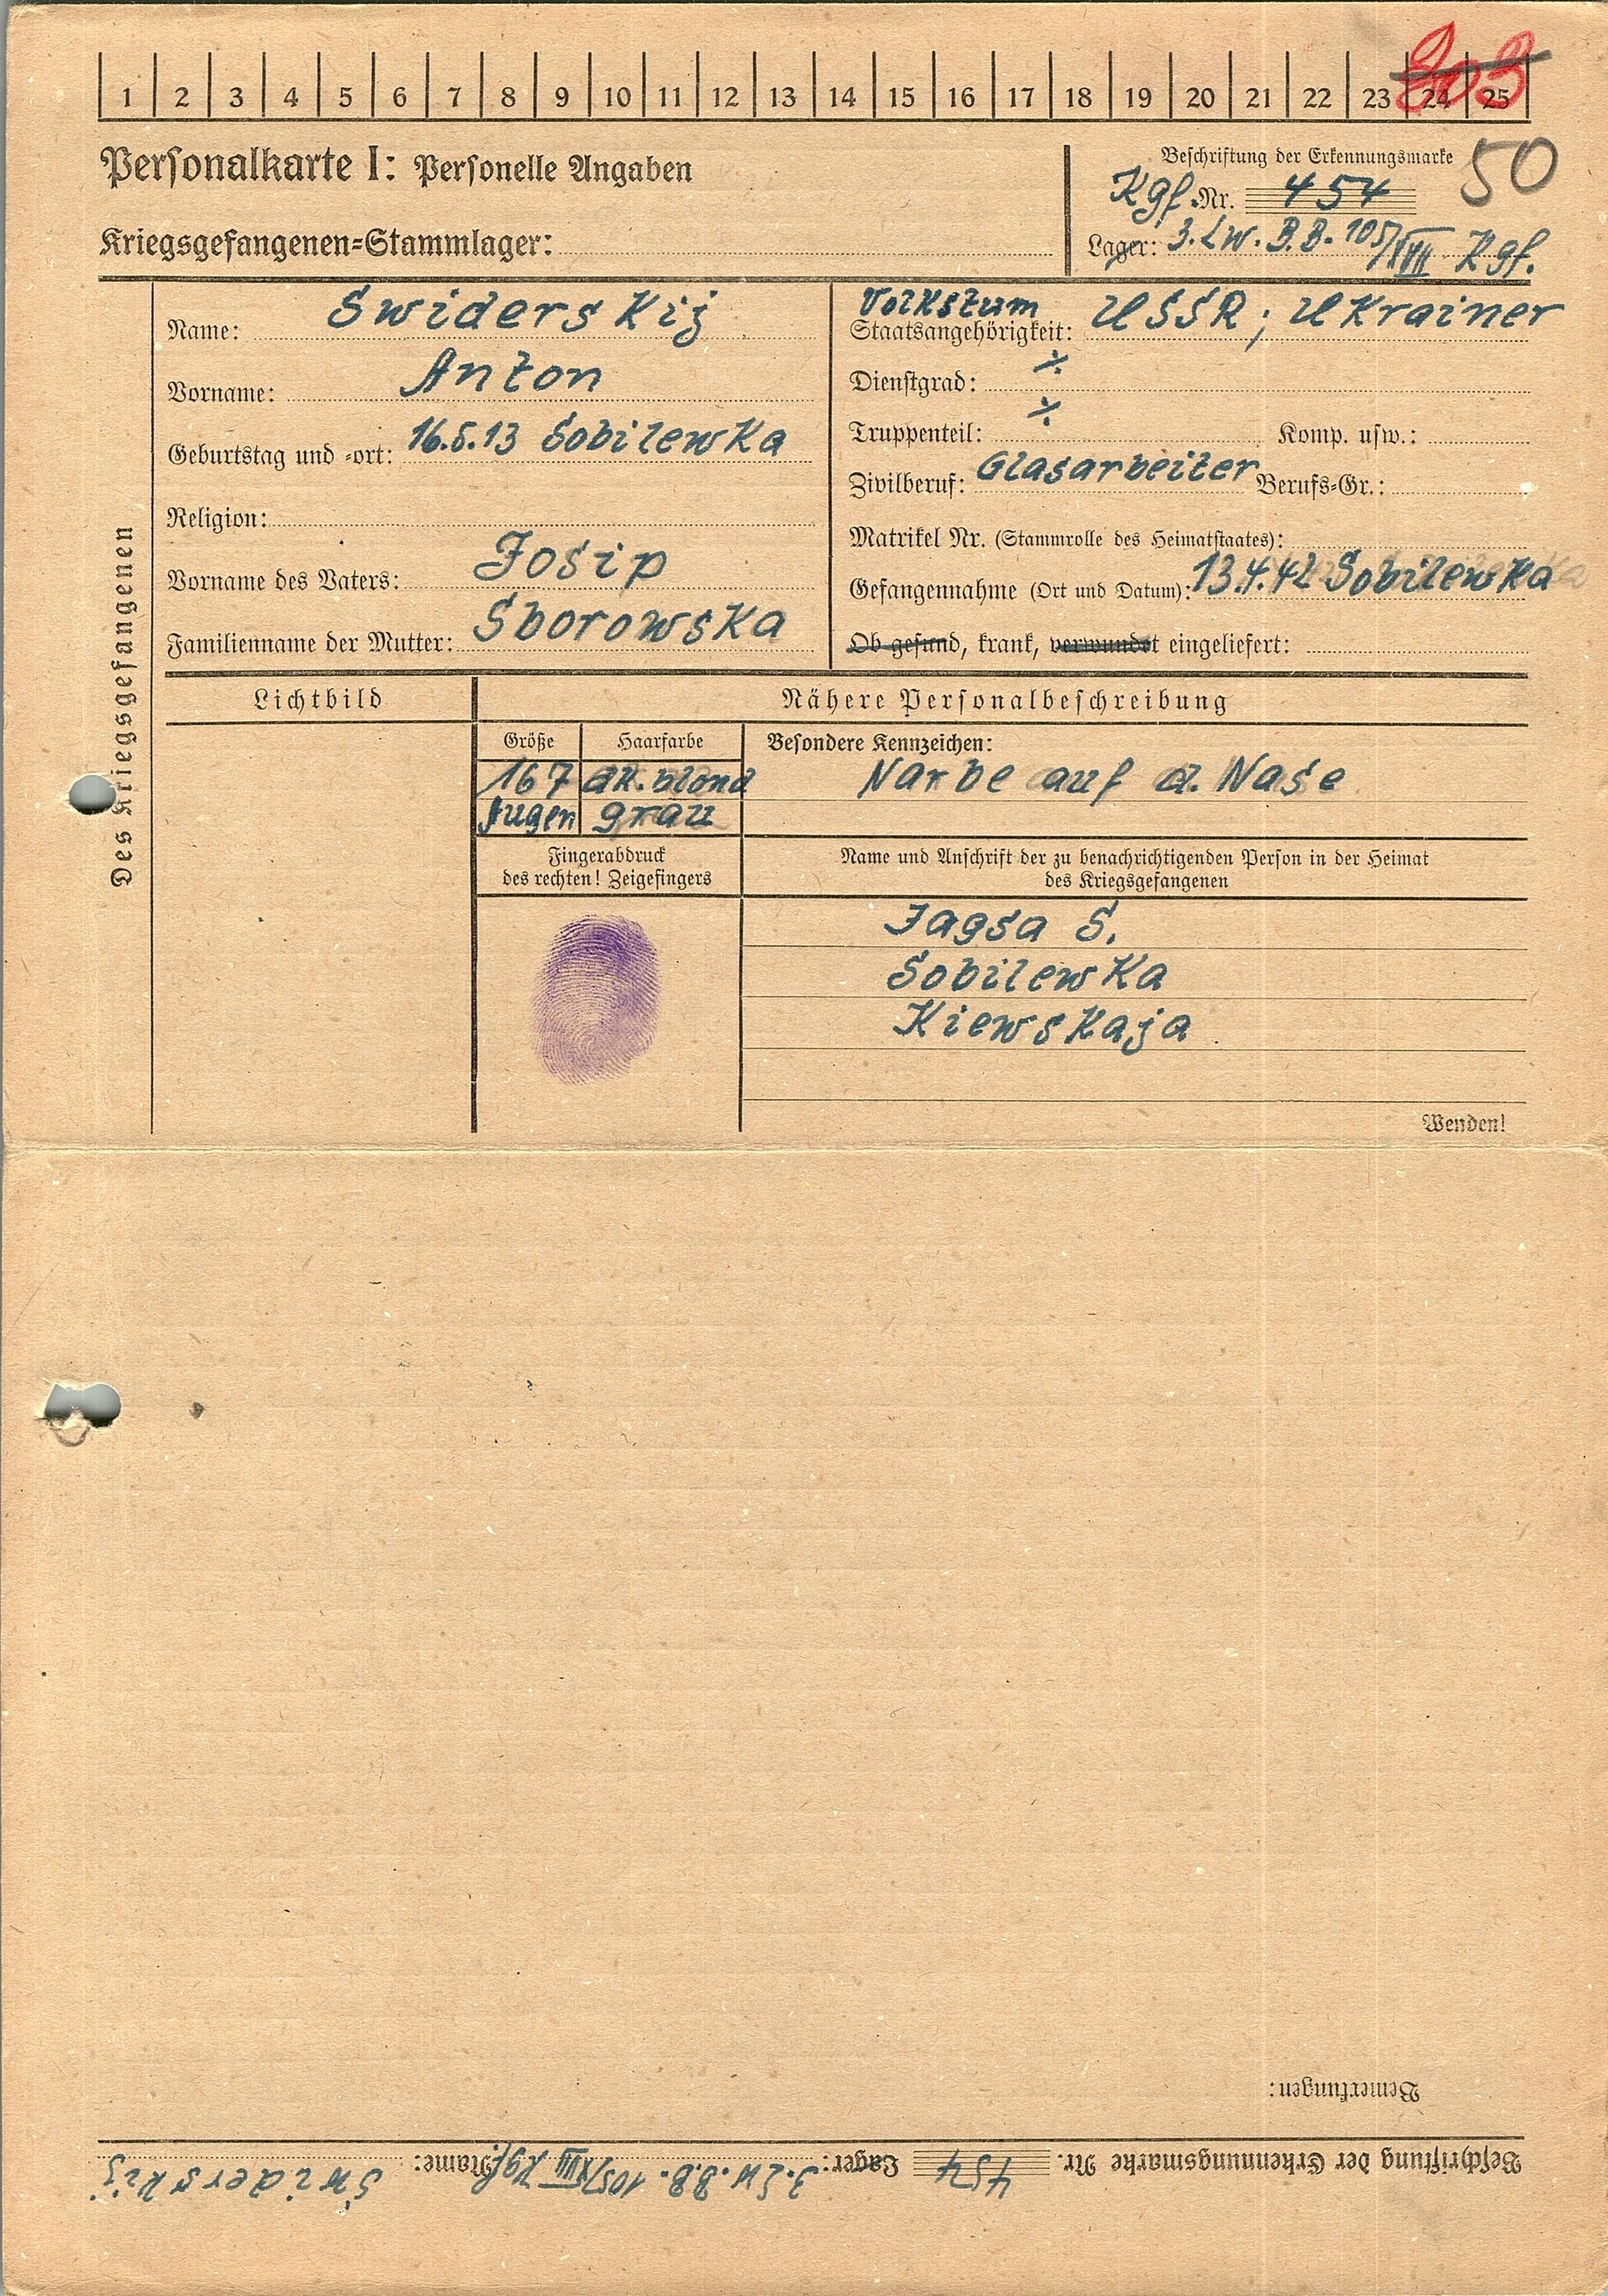 1 2 3 4 5 6 7 8 9 10 11 12 13 14 15 16 17 18 19 20 21 22 23 24 25
Personalkarte I: Personelle Angaben
Beschriftung der Erkennungsmarke 50
Kgf. Nr. 454
Kriegsgefangenen=Stammlager:
Lager: 3. Lw. B.B. 105/XVII Kgf.
Des Kriegsgefangenen
Name: Swiderskij
Vorname: Anton
Geburtstag und =ort: 16.5.13 Sobilewka
Religion:
Vorname des Vaters: Josip
Familienname der Mutter: Sborowska
Volkstum
Staatsangehörigkeit: USSR; Ukrainer
Dienstgrad: ⁒
Truppenteil: ⁒ Komp. usw.:
Zivilberuf: Glasarbeiter Berufs=Gr.:
Matrikel Nr. (Stammrolle des Heimatstaates):
Gefangennahme (Ort und Datum): 13.4.42 Sobilewka
Ob gesund, krank, verwundet eingeliefert:
Lichtbild
Nähere Personalbeschreibung
Größe Haarfarbe Besondere Kennzeichen:
167 dk. blond Narbe auf d. Nase
Augen grau
Fingerabdruck
des rechten! Zeigefingers
Name und Anschrift der zu benachrichtigenden Person in der Heimat
des Kriegsgefangenen
Jagsa S.
Sobilewka
Kiewskaja
Wenden!
Bemerkungen:
Beschriftung der Erkennungsmarke Nr. 454 Lager: 3. Lw. B.B. 105/XVII Kgf. Name: Swiderskij